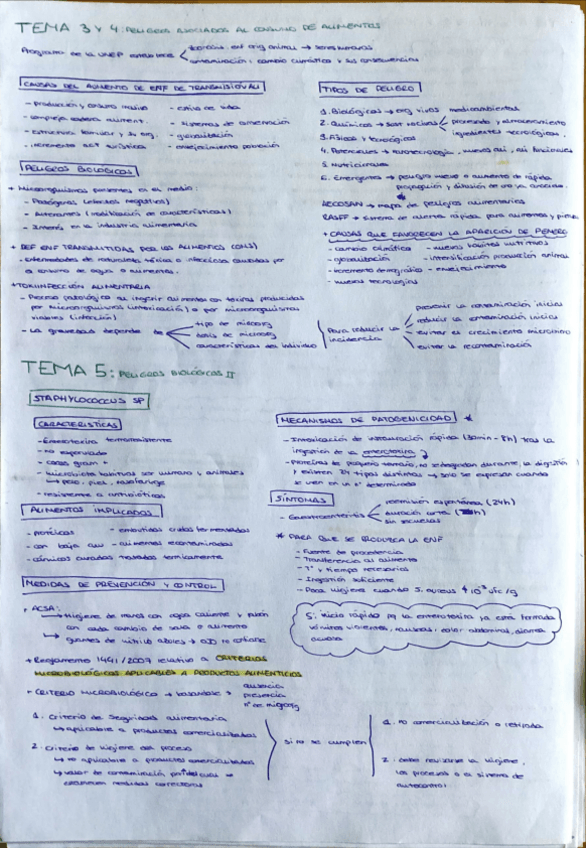 TEMA 3 Y 4: PELIGROS ASOCIADOS AL CONSUMO DE ALIMENTOS
Programa de la UNEP
contaminación, cambio climático y sus consecuencias
CAUSAS DEL AUMENTO DE ENF DE TRANSMISIÓN ALI
- producción y consumo masivo
- estilo de vida
- compleja cadena aliment.
- sistemas de conservación
- globalización
- incremento act turística
- envejecimiento población
TIPOS DE PELIGRO
1. Biológicos → org vivos medioambientales
2. Químicos → sust nocivas
procesado y almacenamiento
ingredientes tecnológicos
3. Físicos y
5. Nutricionales
6. Emergentes → peligro nuevo o aumento de rápida
propagación y difusión de
PELIGROS BIOLÓGICOS
+ Microorganismos presentes en el medio:
- Patógenos (efectos negativos)
- Alterantes (modificación de características)
- Interés en la industria alimentaria
ACCOSAN → mapa de peligros alimentarios
RASFF → sistema de alerta rápida para alimentos y
+ CAUSAS QUE FAVORECEN LA APARICIÓN DE PELIGRO
- cambio climático
- nuevos hábitos nutritivos
- globalización
- intensificación producción animal
- incremento demográfico
- envejecimiento
- nuevas tecnologías
+ DEF ENF TRANSMITIDAS POR LOS ALIMENTOS (OMS)
- enfermedades de naturaleza tóxica o infecciosa causadas por
el consumo de agua o alimentos.
+ TOXIINFECCIÓN ALIMENTARIA
- Proceso patológico al ingerir alimentos con toxinas producidas
por microorganismos (intoxicación) o por microorganismos
viables (infección)
- La gravedad depende de
tipo de microorg
dosis de microorg
características del individuo
Para reducir la
incidencia
prevenir la contaminación inicial
reducir la contaminación inicial
evitar el crecimiento microbiano
evitar la recontaminación
TEMA 5: PELIGROS BIOLÓGICOS II
STAPHYLOCOCCUS SP
CARACTERÍSTICAS
- Enterotoxina termorresistente
- no esporulado
- cocos gram +
- microbiota habitual ser humano y animales
- resistente a antibióticos
MECANISMOS DE PATOGENICIDAD *
- Intoxicación de instauración rápida (30min - 8h) tras la
ingestión de la enterotoxina
- Proteínas de pequeño tamaño, no se degradan durante la digestión
SÍNTOMAS
- Gastroenteritis
remisión espontánea (24h)
duración corta
sin secuelas
ALIMENTOS IMPLICADOS
- proteicos
- embutidos crudos fermentados
- con baja aw
- alimentos recontaminados
- cárnicos curados tratados térmicamente
* PARA QUE SE PRODUZCA LA ENF
- Fuente de procedencia
- Transferencia al alimento
- Tª y tiempo necesarios
- Ingestión suficiente
MEDIDAS DE PREVENCIÓN Y CONTROL
+ ACSA:
Higiene de manos con agua caliente y jabón
con cada cambio de tarea o alimento
S: inicio rápido pq la enterotoxina ya está formada
vómitos violentos, náuseas, dolor abdominal, diarrea
acuosa
+ Reglamento 1441/2007 relativo a CRITERIOS
MICROBIOLÓGICOS APLICABLES A PRODUCTOS ALIMENTICIOS
+ CRITERIO MICROBIOLÓGICO →
ausencia
presencia
nº de microorg
1. Criterio de Seguridad alimentaria
↳ aplicable a productos comercializados
2. Criterio de higiene del proceso
↳ no aplicable a productos comercializados
↳ valor de contaminación por el cual se
medidas correctoras
si no se cumplen
1. no comercialización o retirada
2. debe revisarse la higiene,
los procesos o el sistema de
autocontrol.